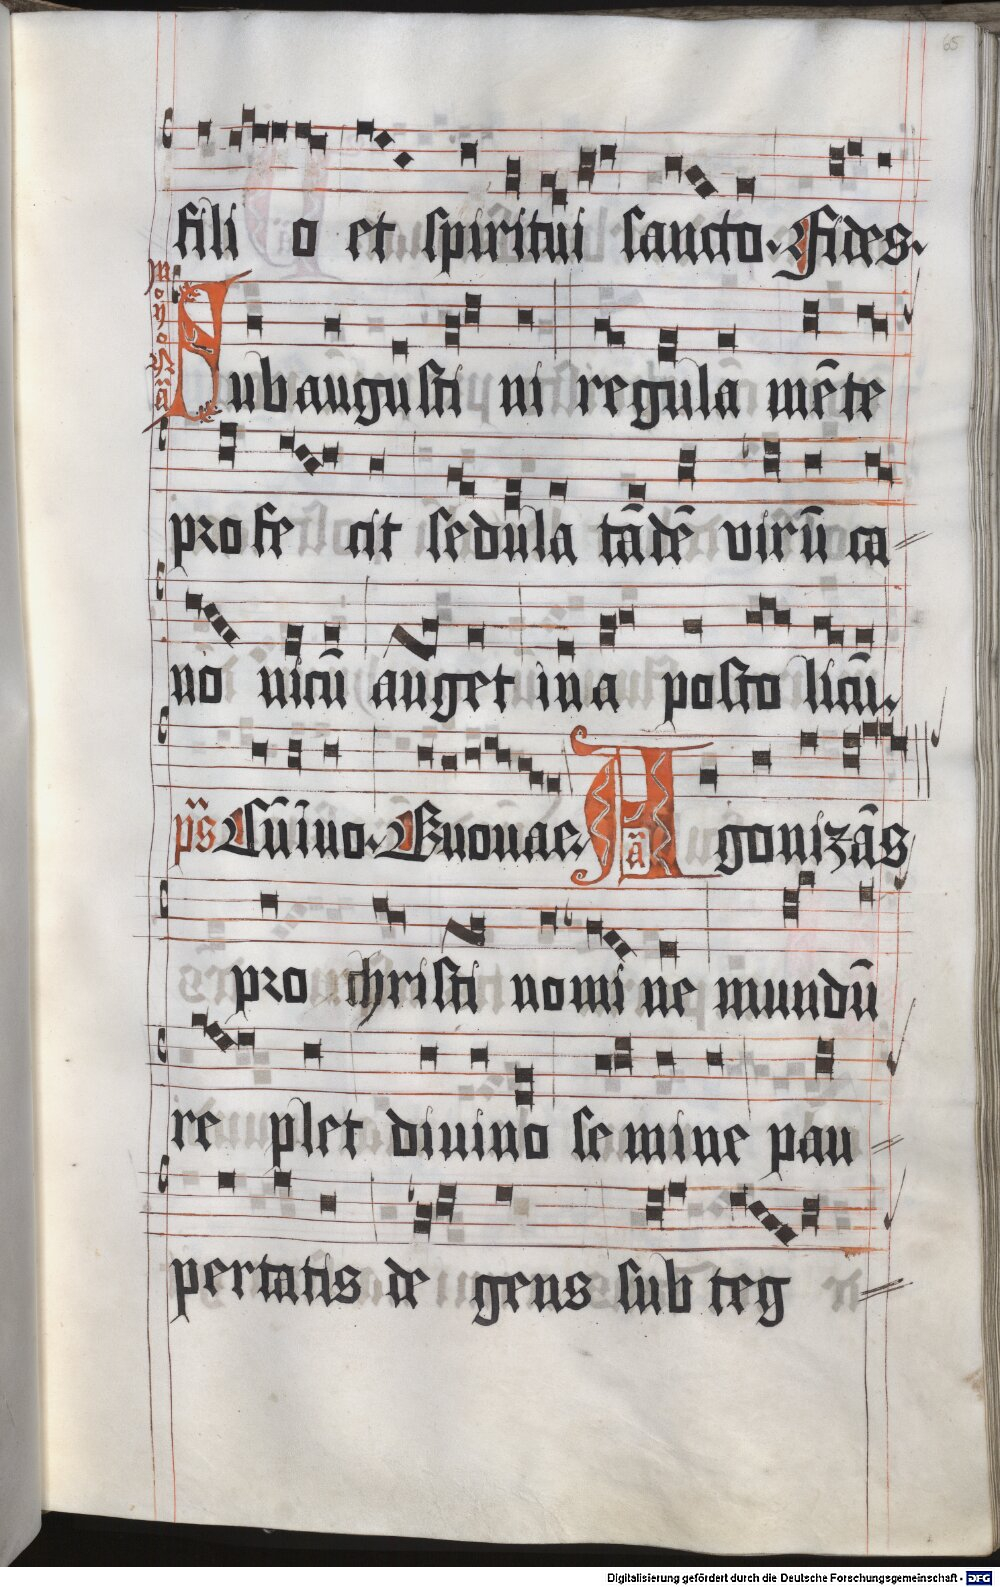 65
fili o et spiritui sancto. Fides.
Sub augusti ni regula mēte
profe cit sedula tādē virū ca
no nicū auget in a posto licū.
pẜs Eūīuo. Euouae. ā Agonizās
pro christi nomi ne mundū
re plet diuino se mine pau
pertatis de gens sub teg
Digitalisierung gefördert durch die Deutsche Forschungsgemeinschaft - DFG